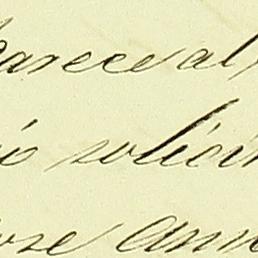 parece al
ió solici
ose ann